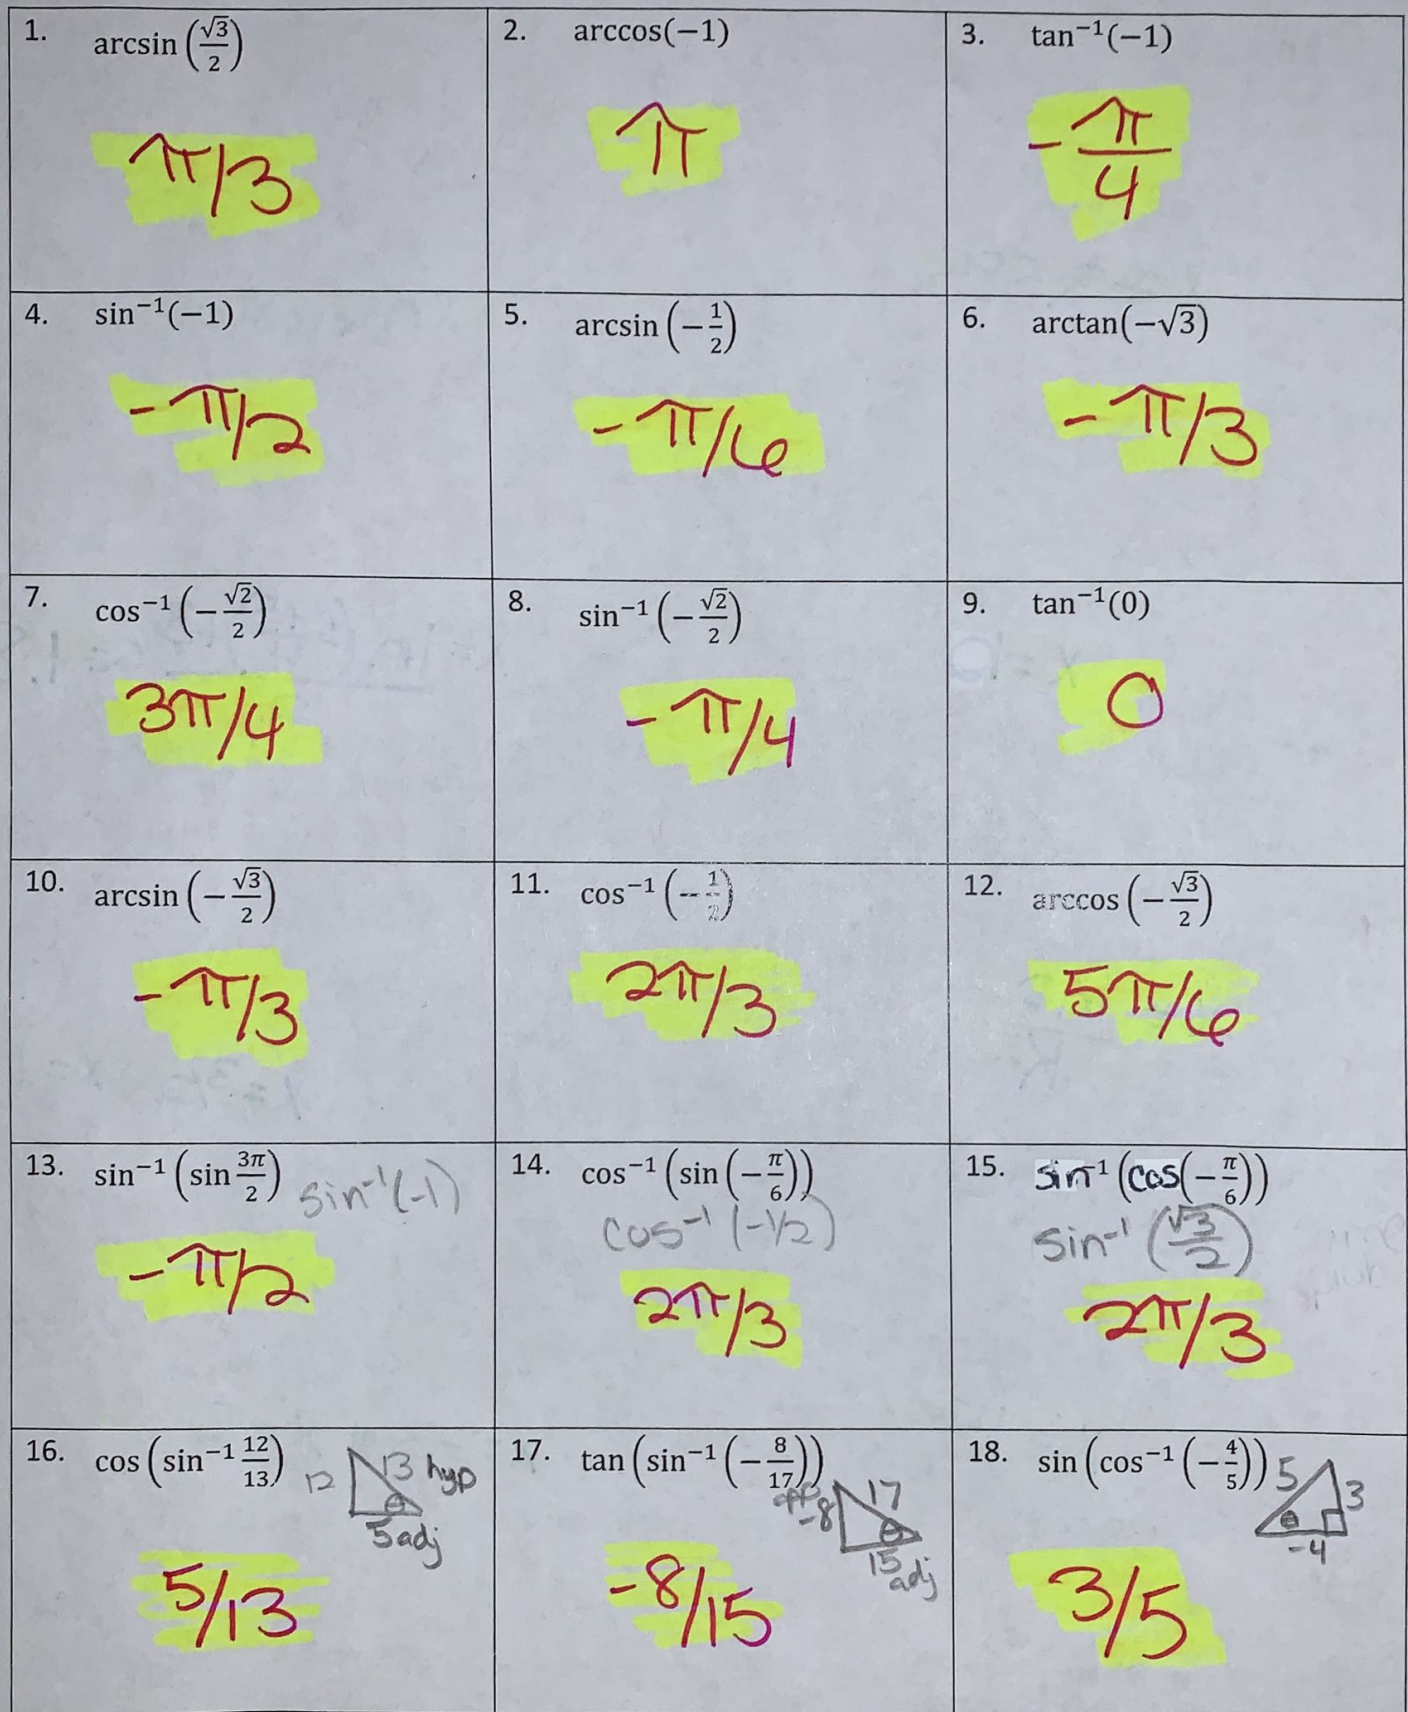 1. arcsin(√3/2)
π/3
2. arccos(−1)
π
3. tan⁻¹(−1)
-π/4
4. sin⁻¹(−1)
-π/2
5. arcsin(−1/2)
-π/6
6. arctan(−√3)
-π/3
7. cos⁻¹(−√2/2)
3π/4
8. sin⁻¹(−√2/2)
-π/4
9. tan⁻¹(0)
0
10. arcsin(−√3/2)
-π/3
11. cos⁻¹(−1/2)
2π/3
12. arccos(−√3/2)
5π/6
13. sin⁻¹(sin 3π/2)
sin⁻¹(-1)
-π/2
14. cos⁻¹(sin(−π/6))
cos⁻¹(-1/2)
2π/3
15. sin⁻¹(cos(−π/6))
sin⁻¹(√3/2)
2π/3
16. cos(sin⁻¹ 12/13)
12 13 hyp
θ
5 adj
5/13
17. tan(sin⁻¹(−8/17))
opp -8 17
θ
15 adj
-8/15
18. sin(cos⁻¹(−4/5))
5 3
θ
-4
3/5